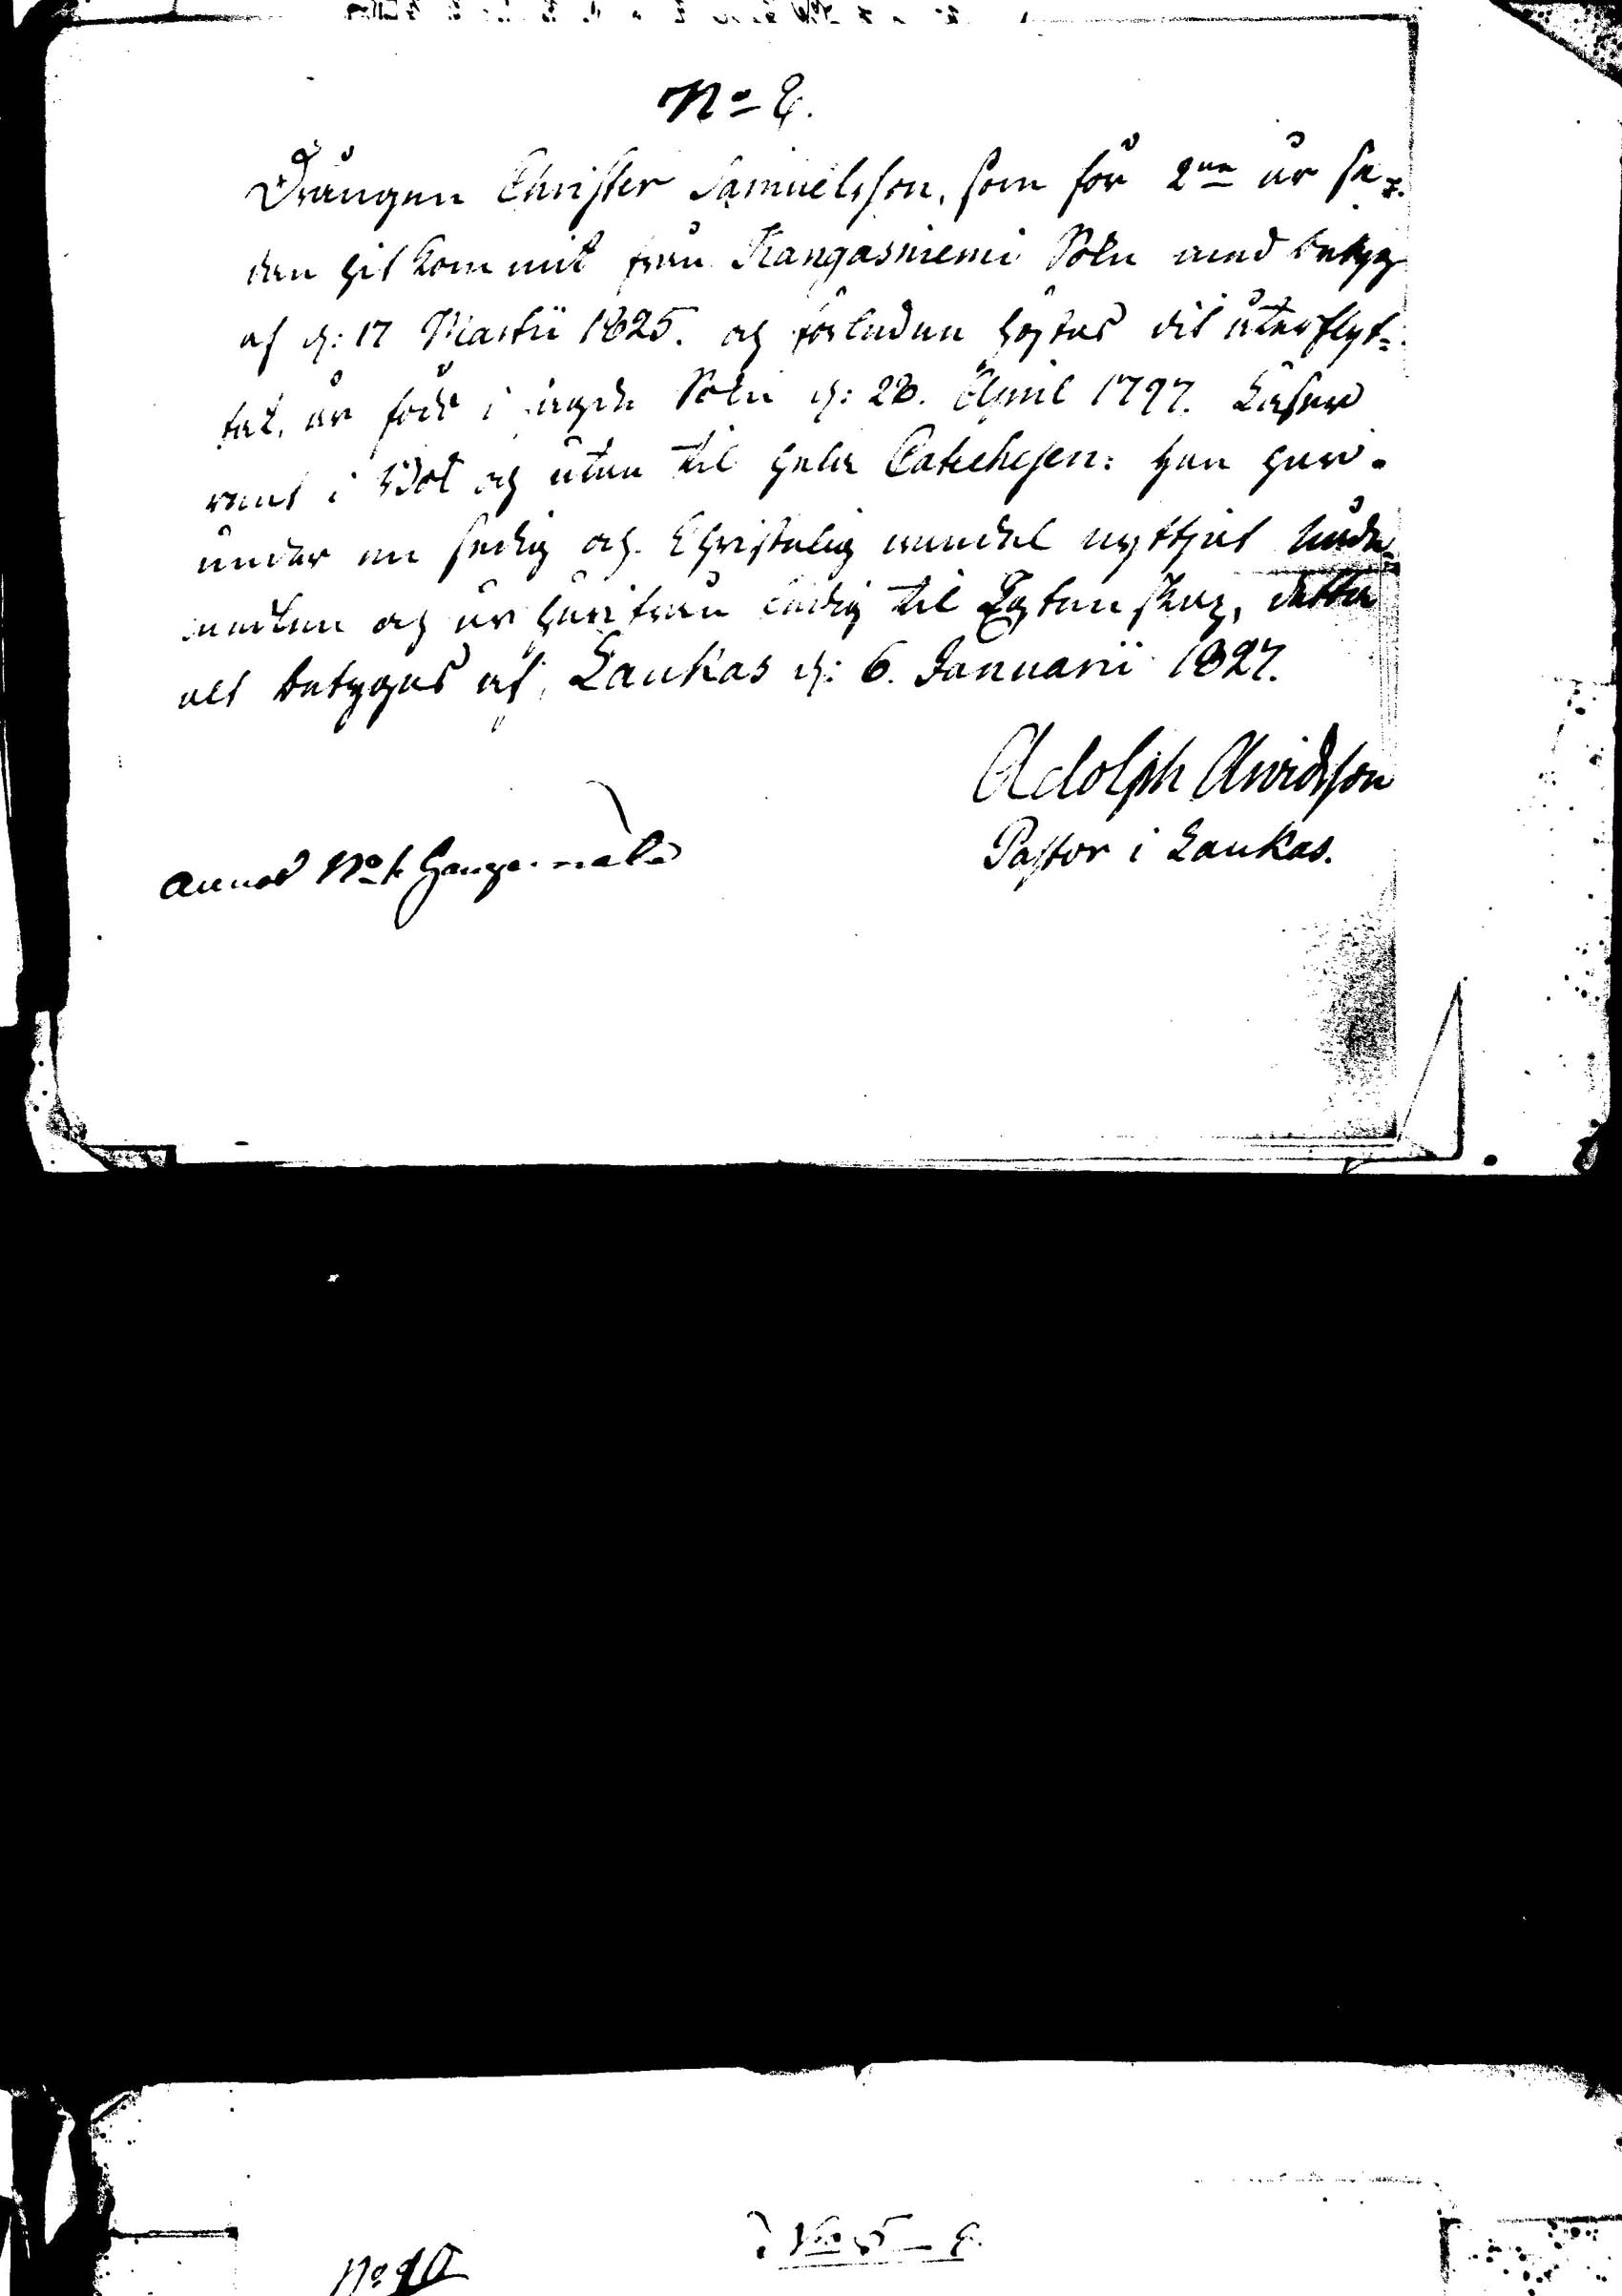 No 2.
Drängen Christer Samuelsson, som för 2ne år se=
dan hit kommit från Kangasniemi Sokn med betyg
af d: 17 Martii 1825. och förledne höstas dit återflyt=
tat, är född i sagde Sokn d: 28. April 1797. Läser
rent i Bok och utan til hela Catechesen: han har
under en sedig och Christelig vandel nyttjat Nåde=
medlen och är härifrån ledig til Egtenskap, detta
alt betygas af, Laukas d: 6. Januarii 1827.
Adolph Arvidsson
Pastor i Laukas.
No 5
No 10